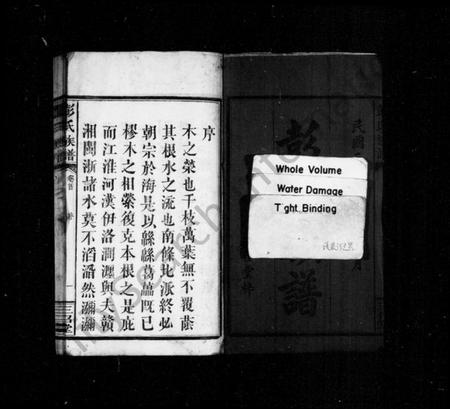 序
木之榮也千枝萬葉無不覆蔭
其根水之流也南條北派終必
朝宗於海是以緜緜葛藟旣已
樛木之相縈復克本根之是庇
而江淮河漢伊洛澗瀍與夫贛
湘閩浙諸水莫不滔滔然瀰瀰
彭氏族譜
卷首
序
一
Whole Volume
Water Damage
Tight Binding
民國
月
彭
譜